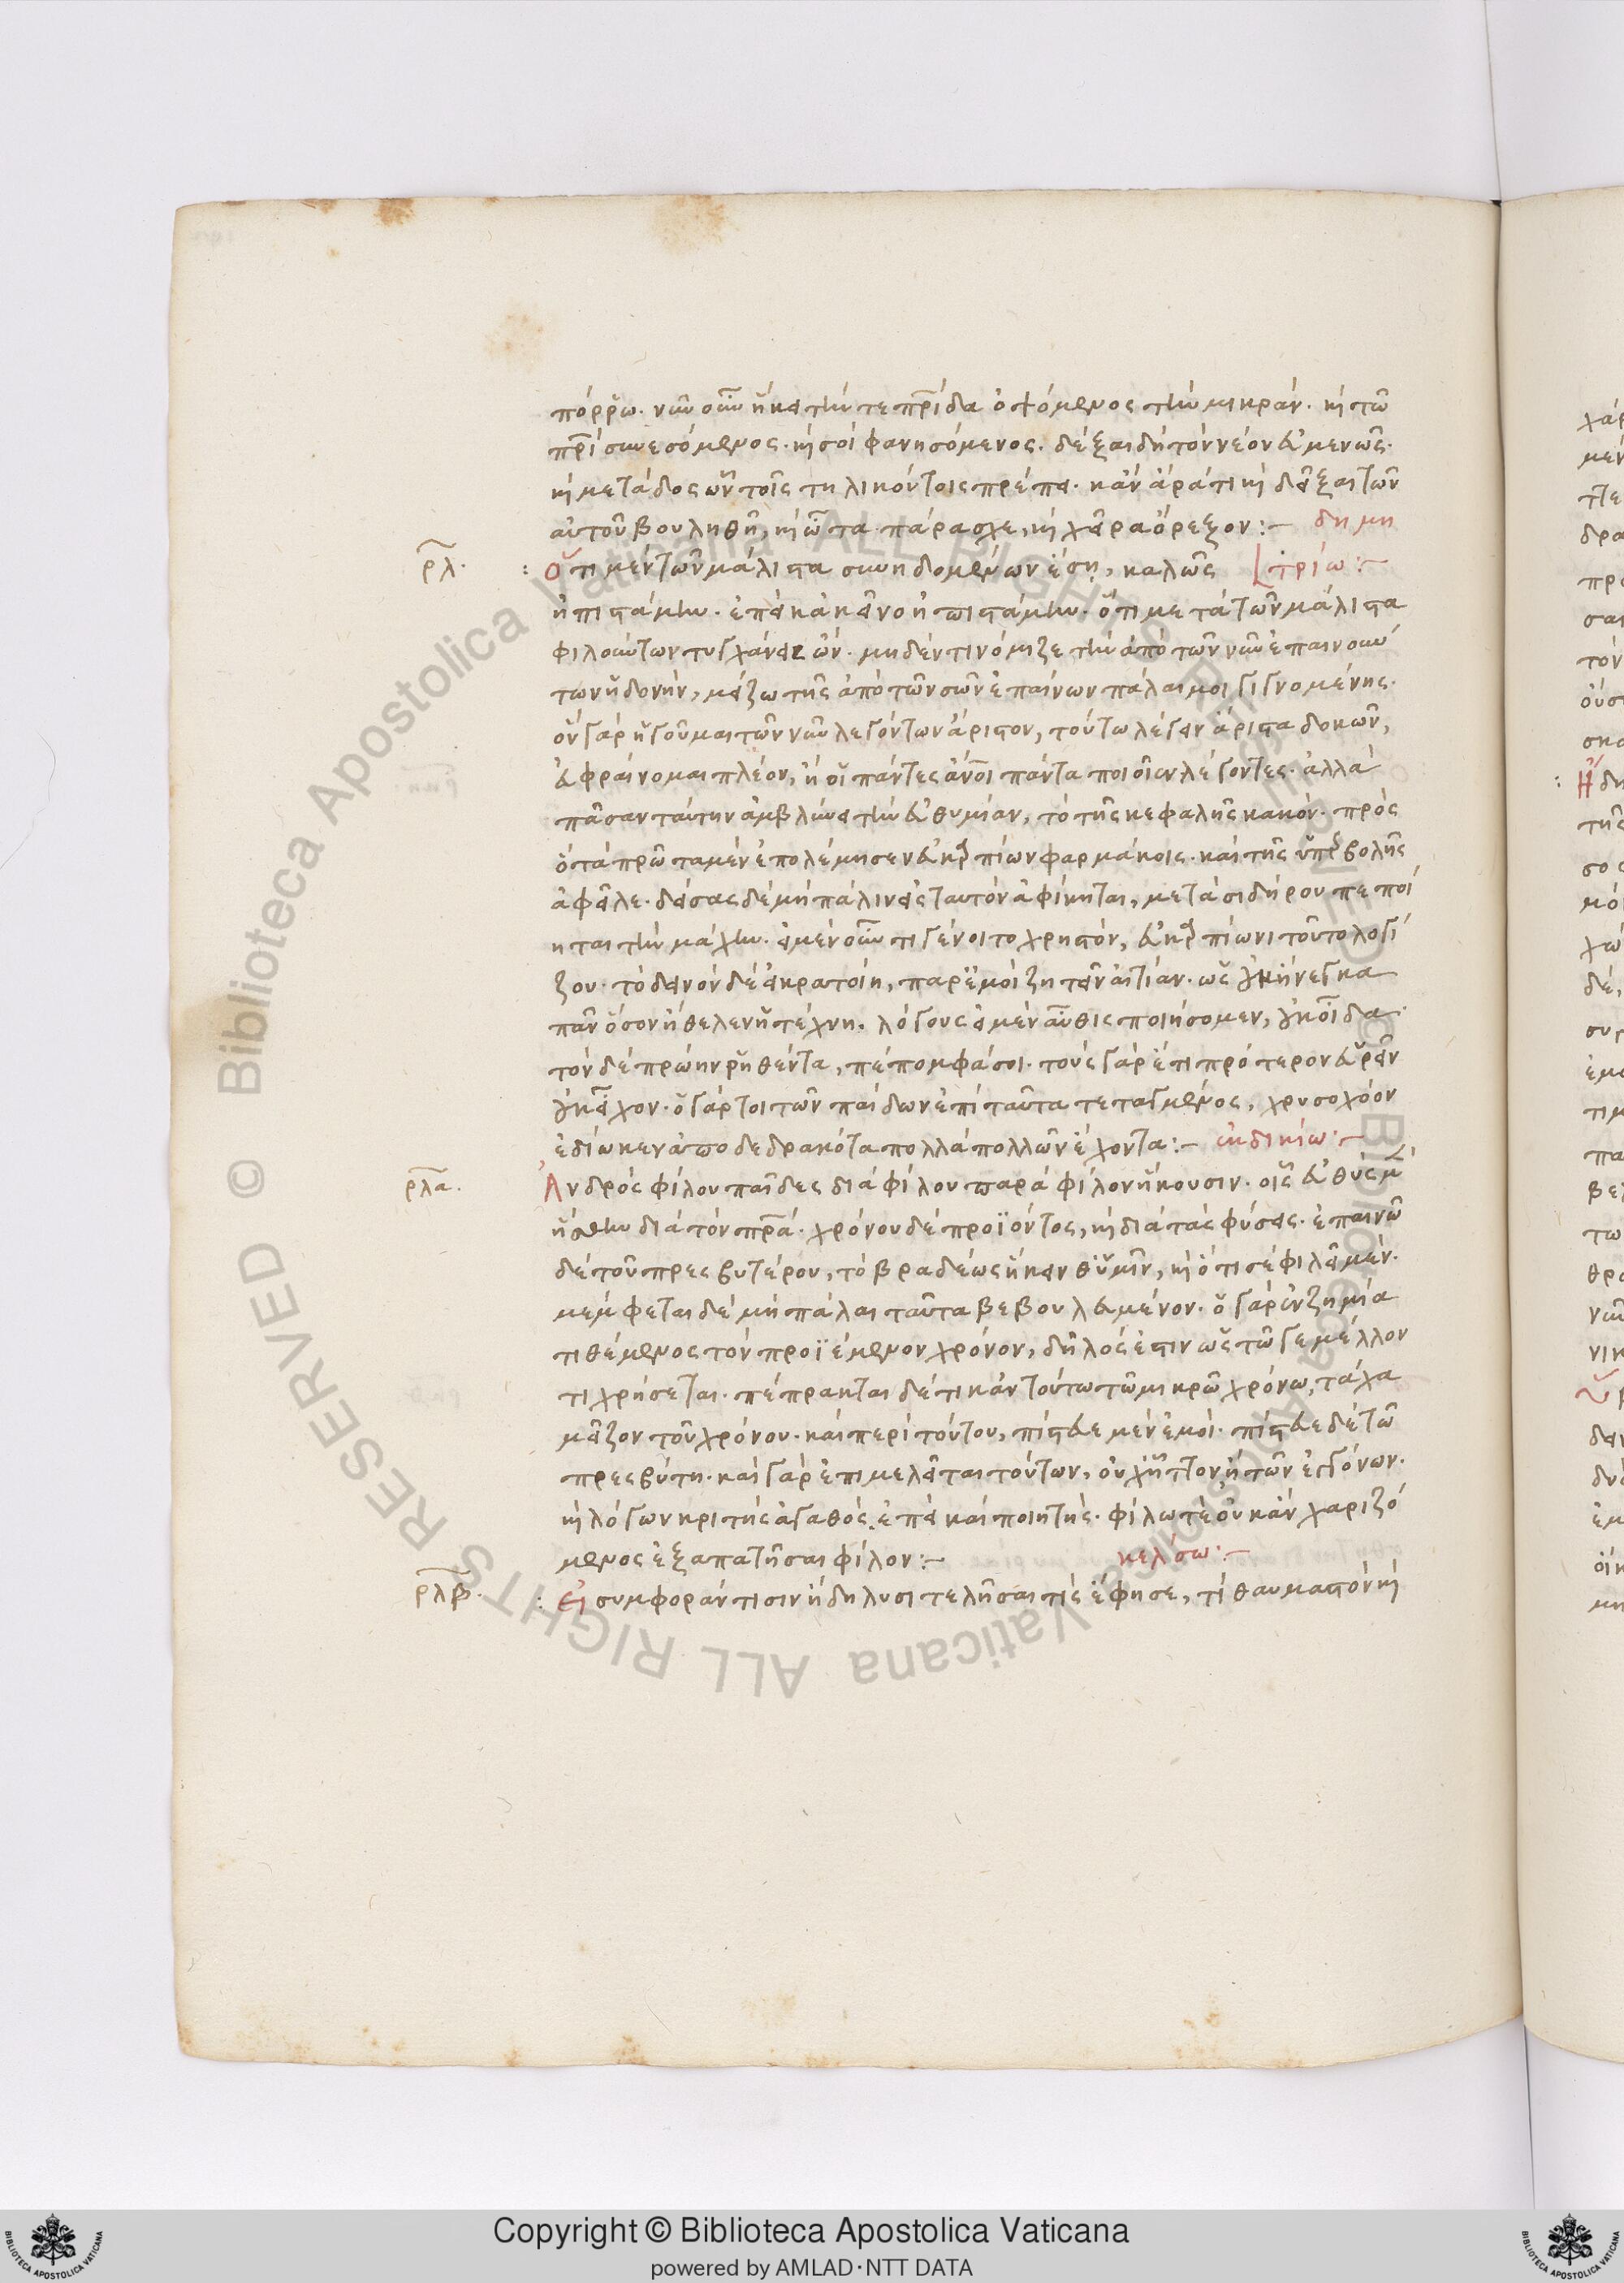 πόρρω. νῦν οὖν ἥκει τήν τε πρίδα ὀψόμενος τὴν μικράν. καὶ τῶ
πρὶ συνεσόμενος. καὶ σοὶ φανησόμενος. δέξαι δὴ τὸν νέον εὐμενῶς.
καὶ μετάδος ὧν τοῖς τηλικούτοις πρέπει. κἂν ἄρά τι καὶ δεῖξαι τῶν
αὑτοῦ βουληθῆ, καὶ ὦτα πάρασχε, καὶ χεῖρα ὄρεξον:– δημη
ρλ. Ὅτι μὲν τῶν μάλιστα συνηδομένων ἔση, καλῶς τρίω:–
ἠπιστάμην. ἐπεὶ κἀκεῖνο ἠπιστάμην. ὅτι μετὰ τῶν μάλιστα
φιλούντων τυγχάνεις ὤν. μηδὲν τι νόμιζε τὴν ἀπὸ τῶν νῦν ἐπαινούν
των ἡδονὴν, μείζω τῆς ἀπὸ τῶν σῶν ἐπαίνων πάλαι μοι γιγνομένης.
ὃν γὰρ ἡγοῦμαι τῶν νῦν λεγόντων ἄριστον, τούτω λέγειν ἄριστα δοκῶν,
εὐφραίνομαι πλέον, ἢ οἱ πάντες ἄνοι πάντα ποιοῖεν λέγοντες. ἀλλὰ
πᾶσαν ταύτην ἀμβλύνει τὴν εὐθυμίαν, τὸ τῆς κεφαλῆς κακόν. πρὸς
ὃ τὰ πρῶτα μὲν ἐπολέμησεν εὐκρπίων φαρμάκοις. καὶ τῆς ὑπρβολῆς
ἀφεῖλε. δείσας δὲ μὴ πάλιν εἰς ταυτὸν ἀφίκηται, μετὰ σιδήρου πεποί
ηται τὴν μάχην. εἰ μὲν οὖν τι γένοιτο χρηστόν, εὐκρπίωνι τοῦτο λογί
ζου. τὸ δεινὸν δὲ εἰ κρατοίη, παρ' ἐμοὶ ζητεῖν αἰτίαν. ὡς ἐκεῖ ἤνεγκα
πᾶν ὅσον ἤθελεν ἡ τέχνη. λόγους εἰ μὲν αὖθις ποιήσομεν, οὐκ οἶδα
τὸν δὲ πρώην ῥηθέντα, πέπομφά σοι. τοὺς γὰρ ἔτι πρότερον εὑρεῖν
οὐκ εἶχον. ὁ γάρ τοι τῶν παίδων ἐπὶ ταῦτα τεταγμένος, χρυσοχόον
ἐδίωκεν ἀποδεδρακότα πολλὰ πολλῶν ἔχοντα:– ἐκδικίω:–
ρλα. Ἀνδρὸς φίλου παῖδες διὰ φίλου παρὰ φίλον ἥκουσιν. οἷς εὐθὺς μὲν
ἥσθην διὰ τὸν πρα. χρόνου δὲ προϊόντος, καὶ διὰ τὰς φύσεις. ἐπαινῶ
δὲ τοῦ πρεσβυτέρου, τὸ βραδέως ἥκειν θ' ὑμῖν, καὶ ὅτι σέ φιλεῖ μέν.
μέμφεται δὲ μὴ πάλαι ταῦτα βεβουλευμένον. ὁ γὰρ ἐν ζημία
τιθέμενος τὸν προϊέμενον χρόνον, δῆλός ἐστιν ὡς τῶ γε μέλλον
τι χρήσεται. πέπρακται δέ τι κἀν τούτω τῶ μικρῶ χρόνω, τάχα
μεῖζον τοῦ χρόνου. καὶ περὶ τούτου, πίστευε μὲν ἐμοί. πίστευε δὲ τῶ
πρεσβύτη. καὶ γὰρ ἐπιμελεῖται τούτων, οὐχ ἧττον ἢ τῶν ἐγγόνων.
καὶ λόγων κριτὴς ἀγαθός, ἐπεὶ καὶ ποιητής. φίλω τε οὐκ ἂν χαριζό
μενος ἐξαπατῆσαι φίλον:– κελσω:–
ρλβ. Εἰ συμφοράν τισιν ἤδη λυσιτελῆσαι τις ἔφησε, τί θαυμαστὸν καὶ